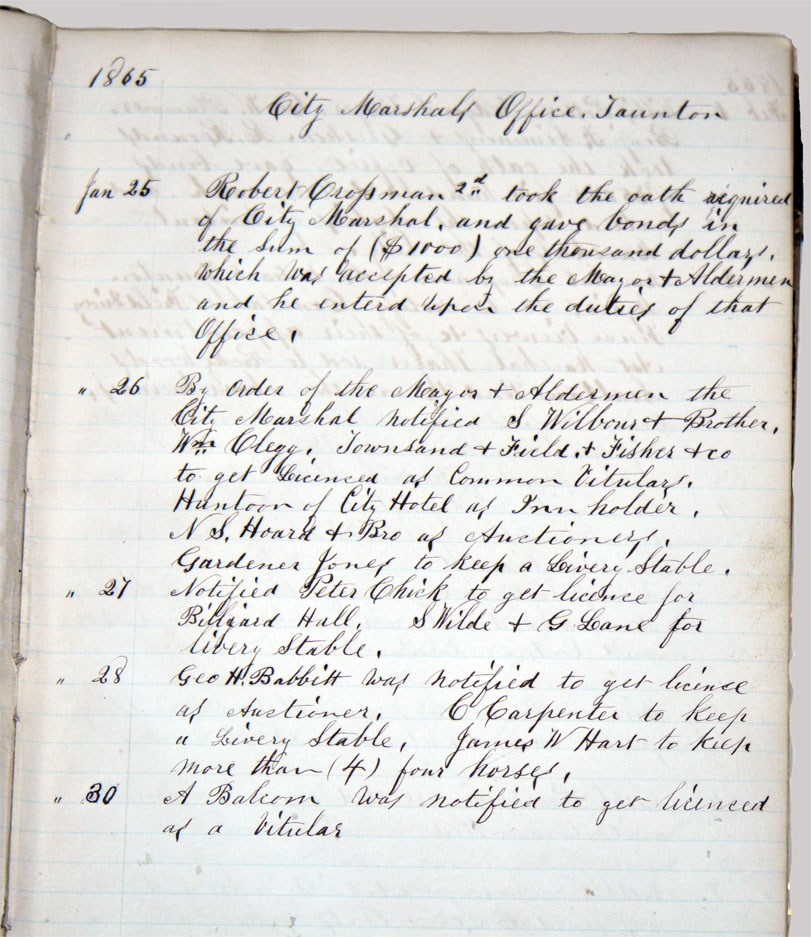 1865
City Marshals Office. Taunton
Jan 25 Robert Crossman 2nd took the oath required
of City Marshal, and gave bonds in
the sum of ($1000) one thousand dollars.
which was accepted by the Mayor & Aldermen
and he enterd upon the duties of that
Office.
" 26 By Order of the Mayor & Aldermen the
City Marshal notified S Wilbour & Brother.
Wm Clegg. Townsand & Field. & Fisher & co
to get Licensed as Common Vitulars.
Huntoon of City Hotel as Inn holder.
N S. Hoard & Bro as Auctioners.
Gardener Jones to keep a Livery Stable.
" 27 Notified Peter Chick to get license for
Billiard Hall. S Wilde & G Lane for
livery Stable.
" 28 Geo H. Babbitt was notified to get license
as Auctioner. C Carpenter to keep
a Livery Stable, James W Hart to keep
more than (4) four horses.
" 30 A Balcom was notified to get licensed
as a Vitular